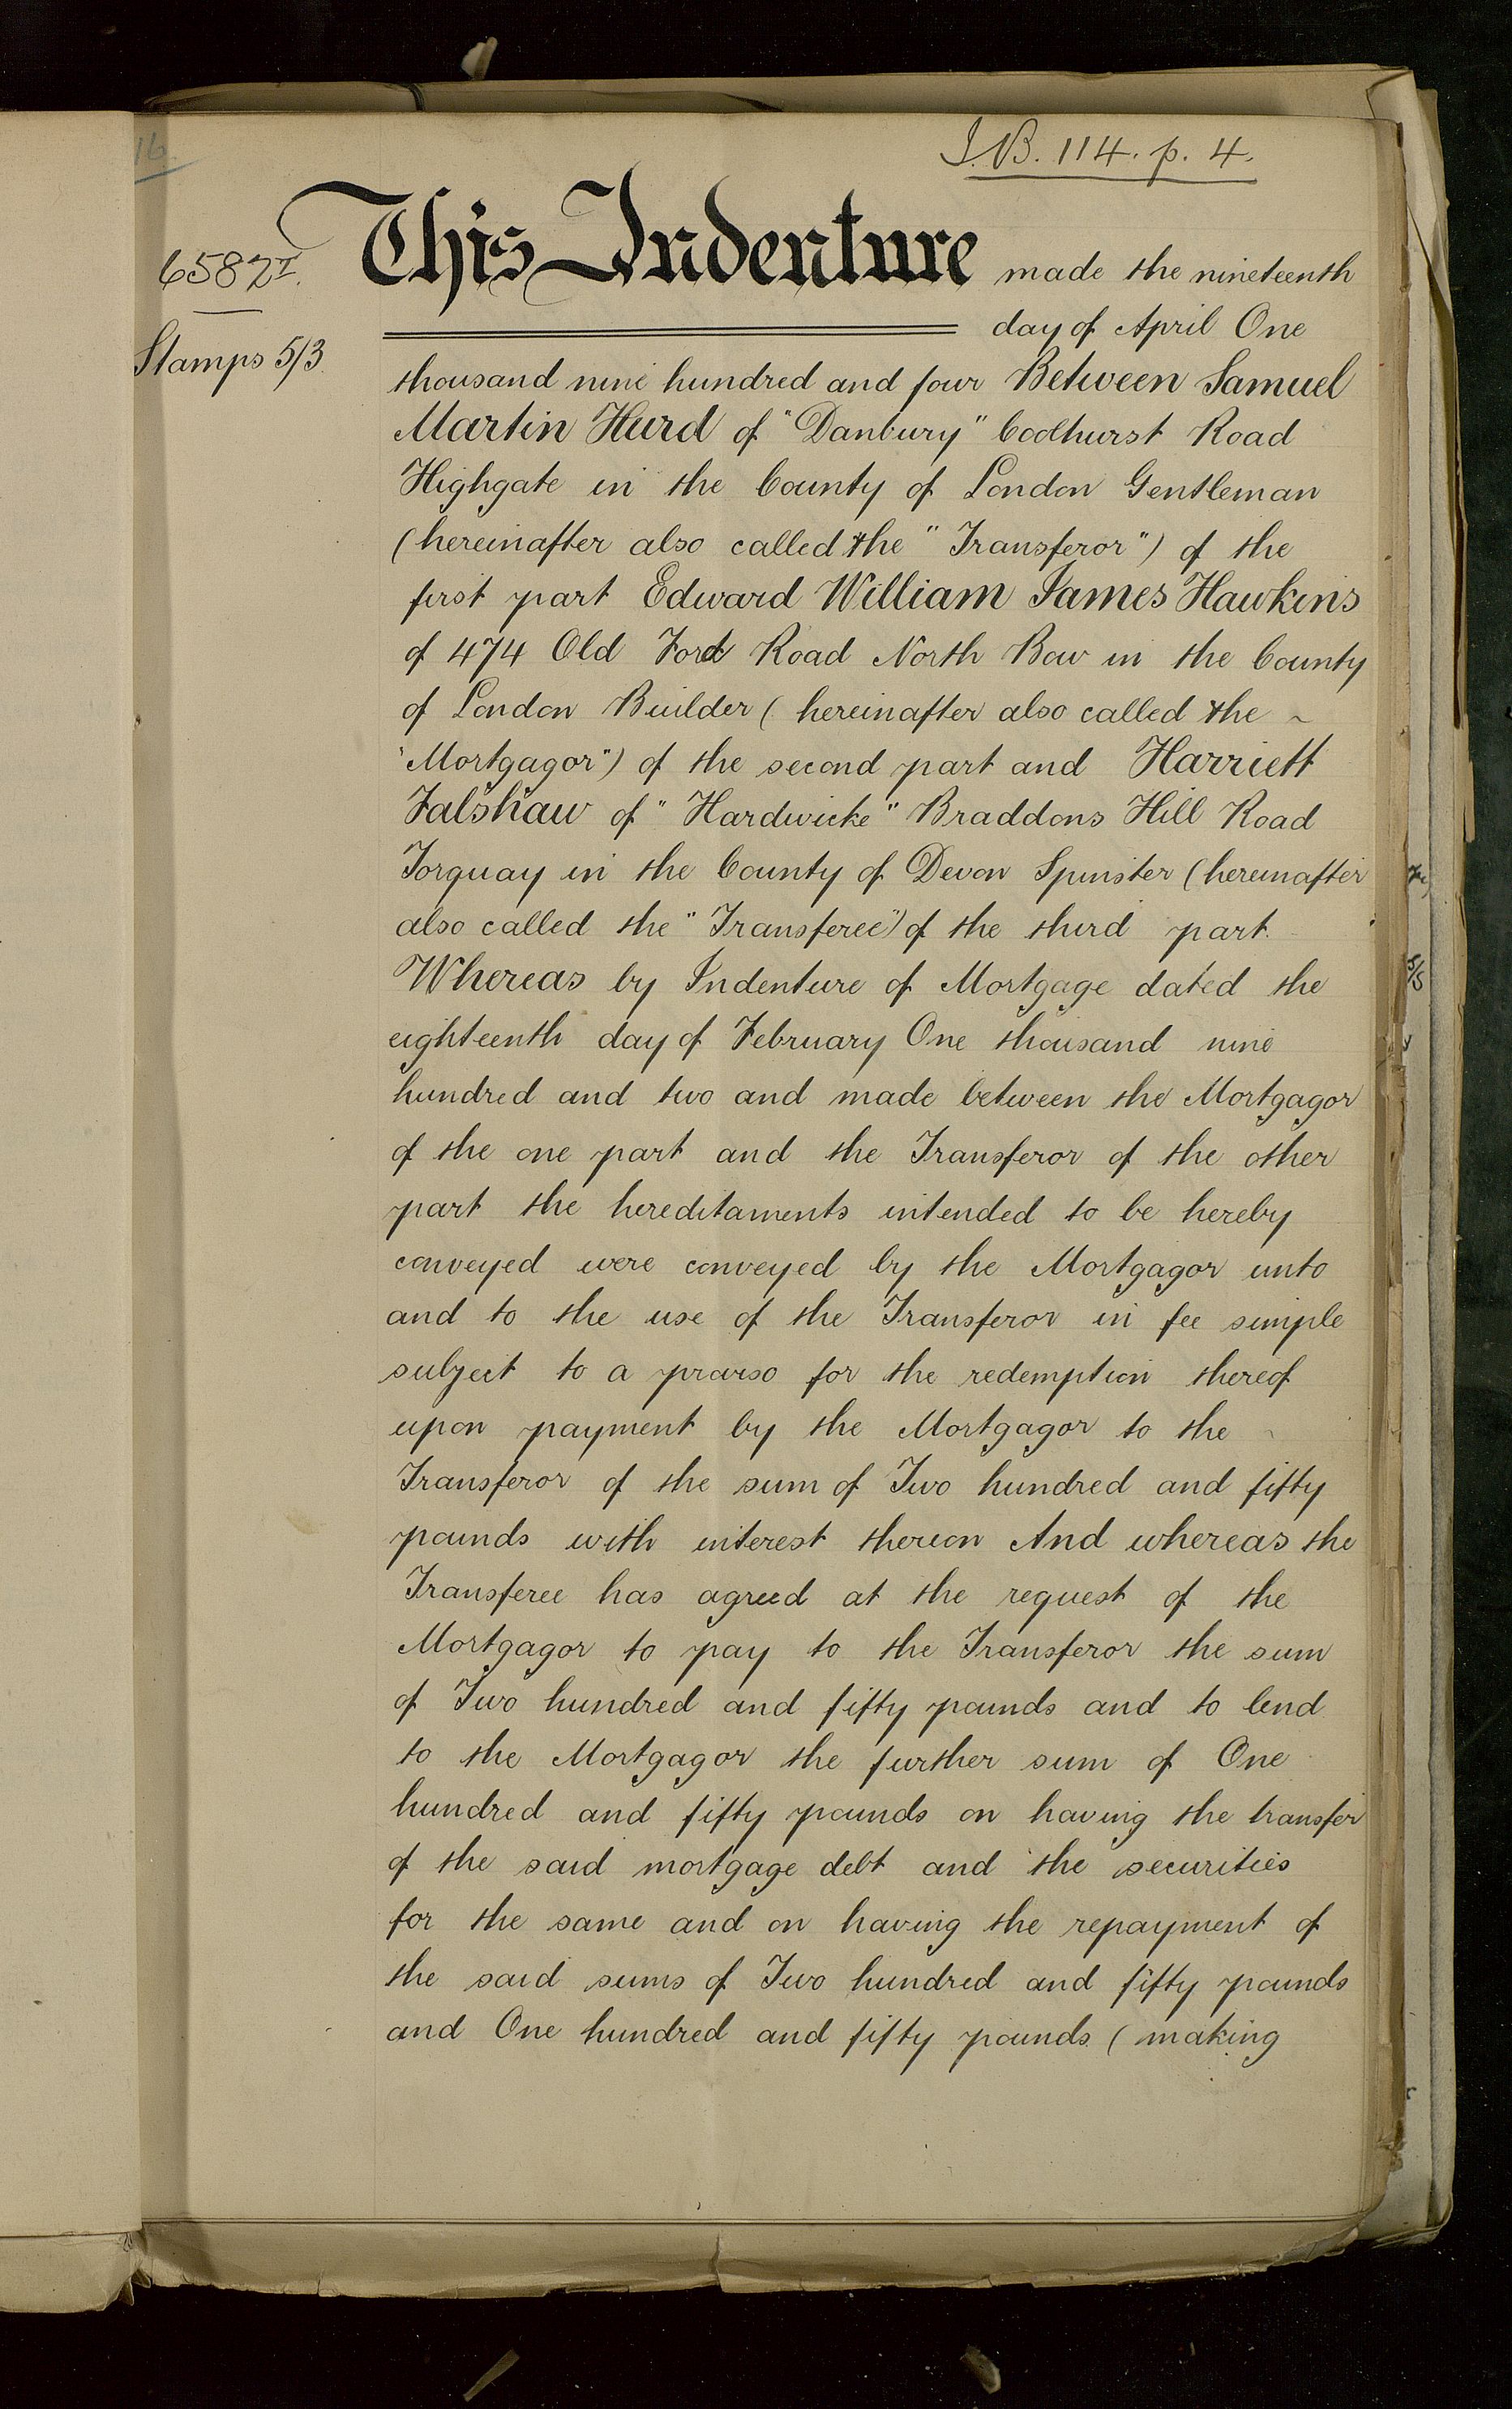 16
I.B. 114. p. 4.
6582I.
Stamps 5/3.
This Indenture made the nineteenth
day of April One
thousand nine hundred and four Between Samuel
Martin Hurd of "Danbury" Coolhurst Road
Highgate in the County of London Gentleman
(hereinafter also called the "Transferor") of the
first part Edward William James Hawkins
of 474 Old Ford Road North Bow in the County
of London Builder (hereinafter also called the ~
"Mortgagor") of the second part and Harriett
Falshaw of "Hardwicke" Braddons Hill Road
Torquay in the County of Devon Spinster (hereinafter
also called the "Transferee") of the third part.
Whereas by Indenture of Mortgage dated the
eighteenth day of February One thousand nine
hundred and two and made between the Mortgagor
of the one part and the Transferor of the other
part the hereditaments intended to be hereby
conveyed were conveyed by the Mortgagor unto
and to the use of the Transferor in fee simple
subject to a proviso for the redemption thereof
upon payment by the Mortgagor to the ~
Transferor of the sum of Two hundred and fifty
pounds with interest thereon And whereas the
Transferee has agreed at the request of the
Mortgagor to pay to the Transferor the sum
of Two hundred and fifty pounds and to lend
to the Mortgagor the further sum of One
hundred and fifty pounds on having the transfer
of the said mortgage debt and the securities
for the same and on having the repayment of
the said sums of Two hundred and fifty pounds
and One hundred and fifty pounds (making